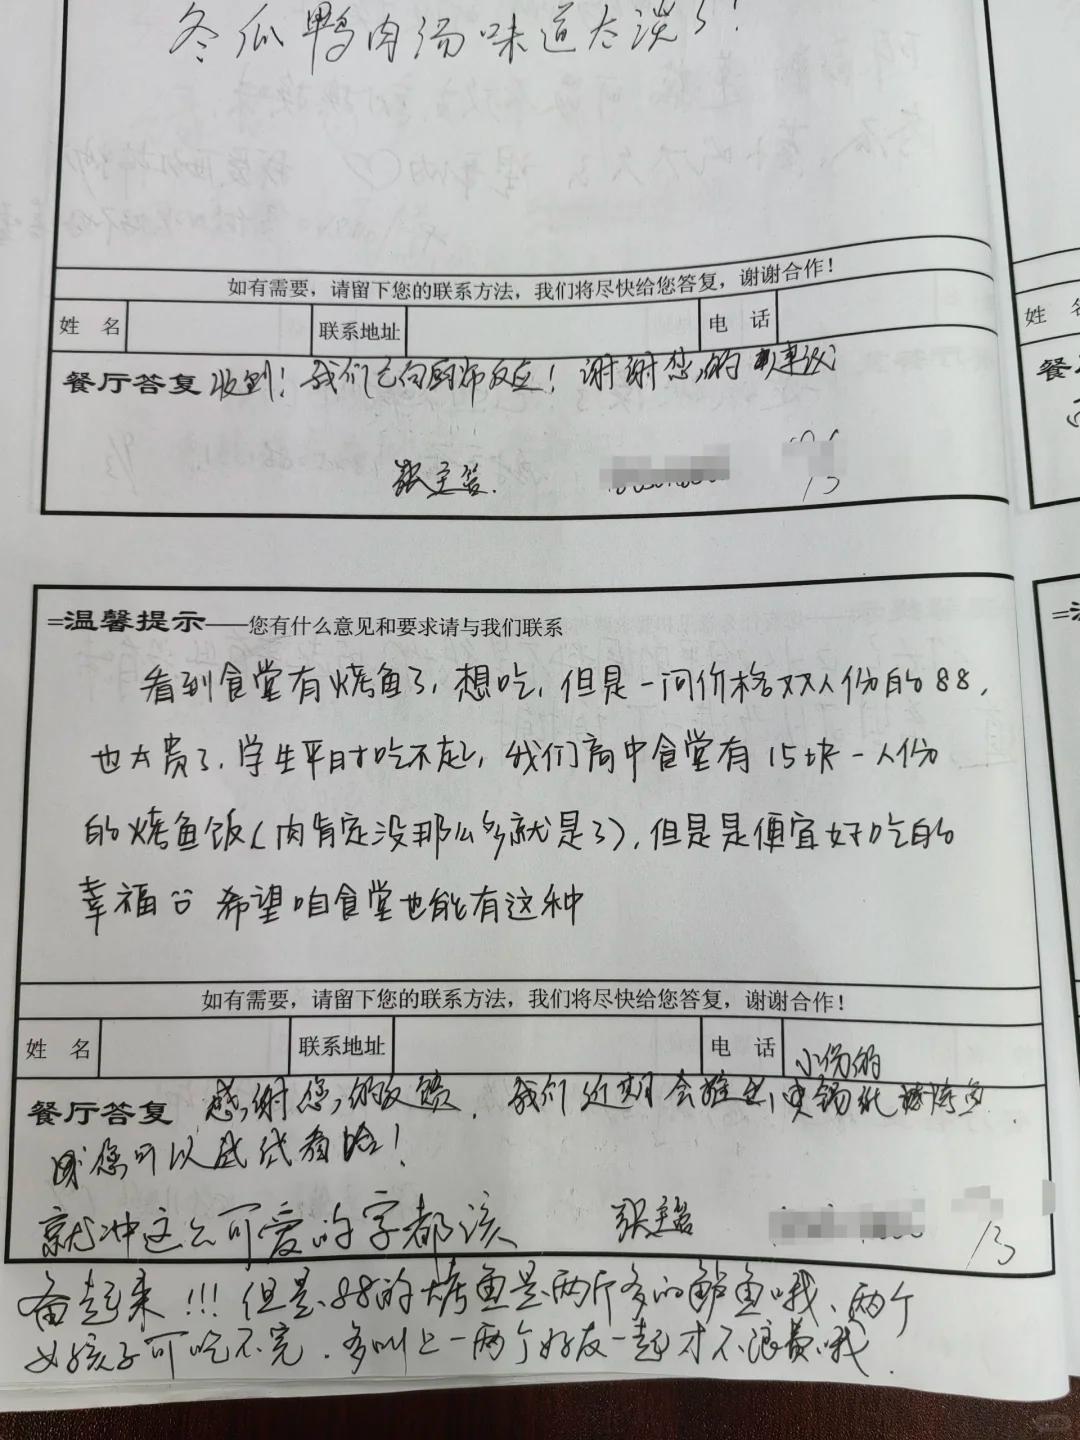 冬瓜鸭肉汤味道太淡了!
如有需要，请留下您的联系方法，我们将尽快给您答复，谢谢合作！
姓 名 联系地址 电 话
姓 名
餐厅答复 收到！我们已向厨师反应！谢谢您的
张主管.
13
=温馨提示——您有什么意见和要求请与我们联系
看到食堂有烤鱼了，想吃，但是一问价格双人份的88，
也太贵了，学生平时吃不起，我们高中食堂有15块一人份
的烤鱼饭(肉肯定没那么多就是了)，但是是便宜好吃的
幸福 希望咱食堂也能有这种
如有需要，请留下您的联系方法，我们将尽快给您答复，谢谢合作！
姓 名 联系地址 电 话
小份的
餐厅答复 感谢您的反馈，我们近期会推出 锡纸 烤鱼
您可以试试看哈！
就冲这么可爱的字都该
张主管
13
奋起来!!!但是88的烤鱼是两斤多的鲈鱼哦、两个
女孩子可吃不完.多叫上一两个好友一起才不浪费哦.